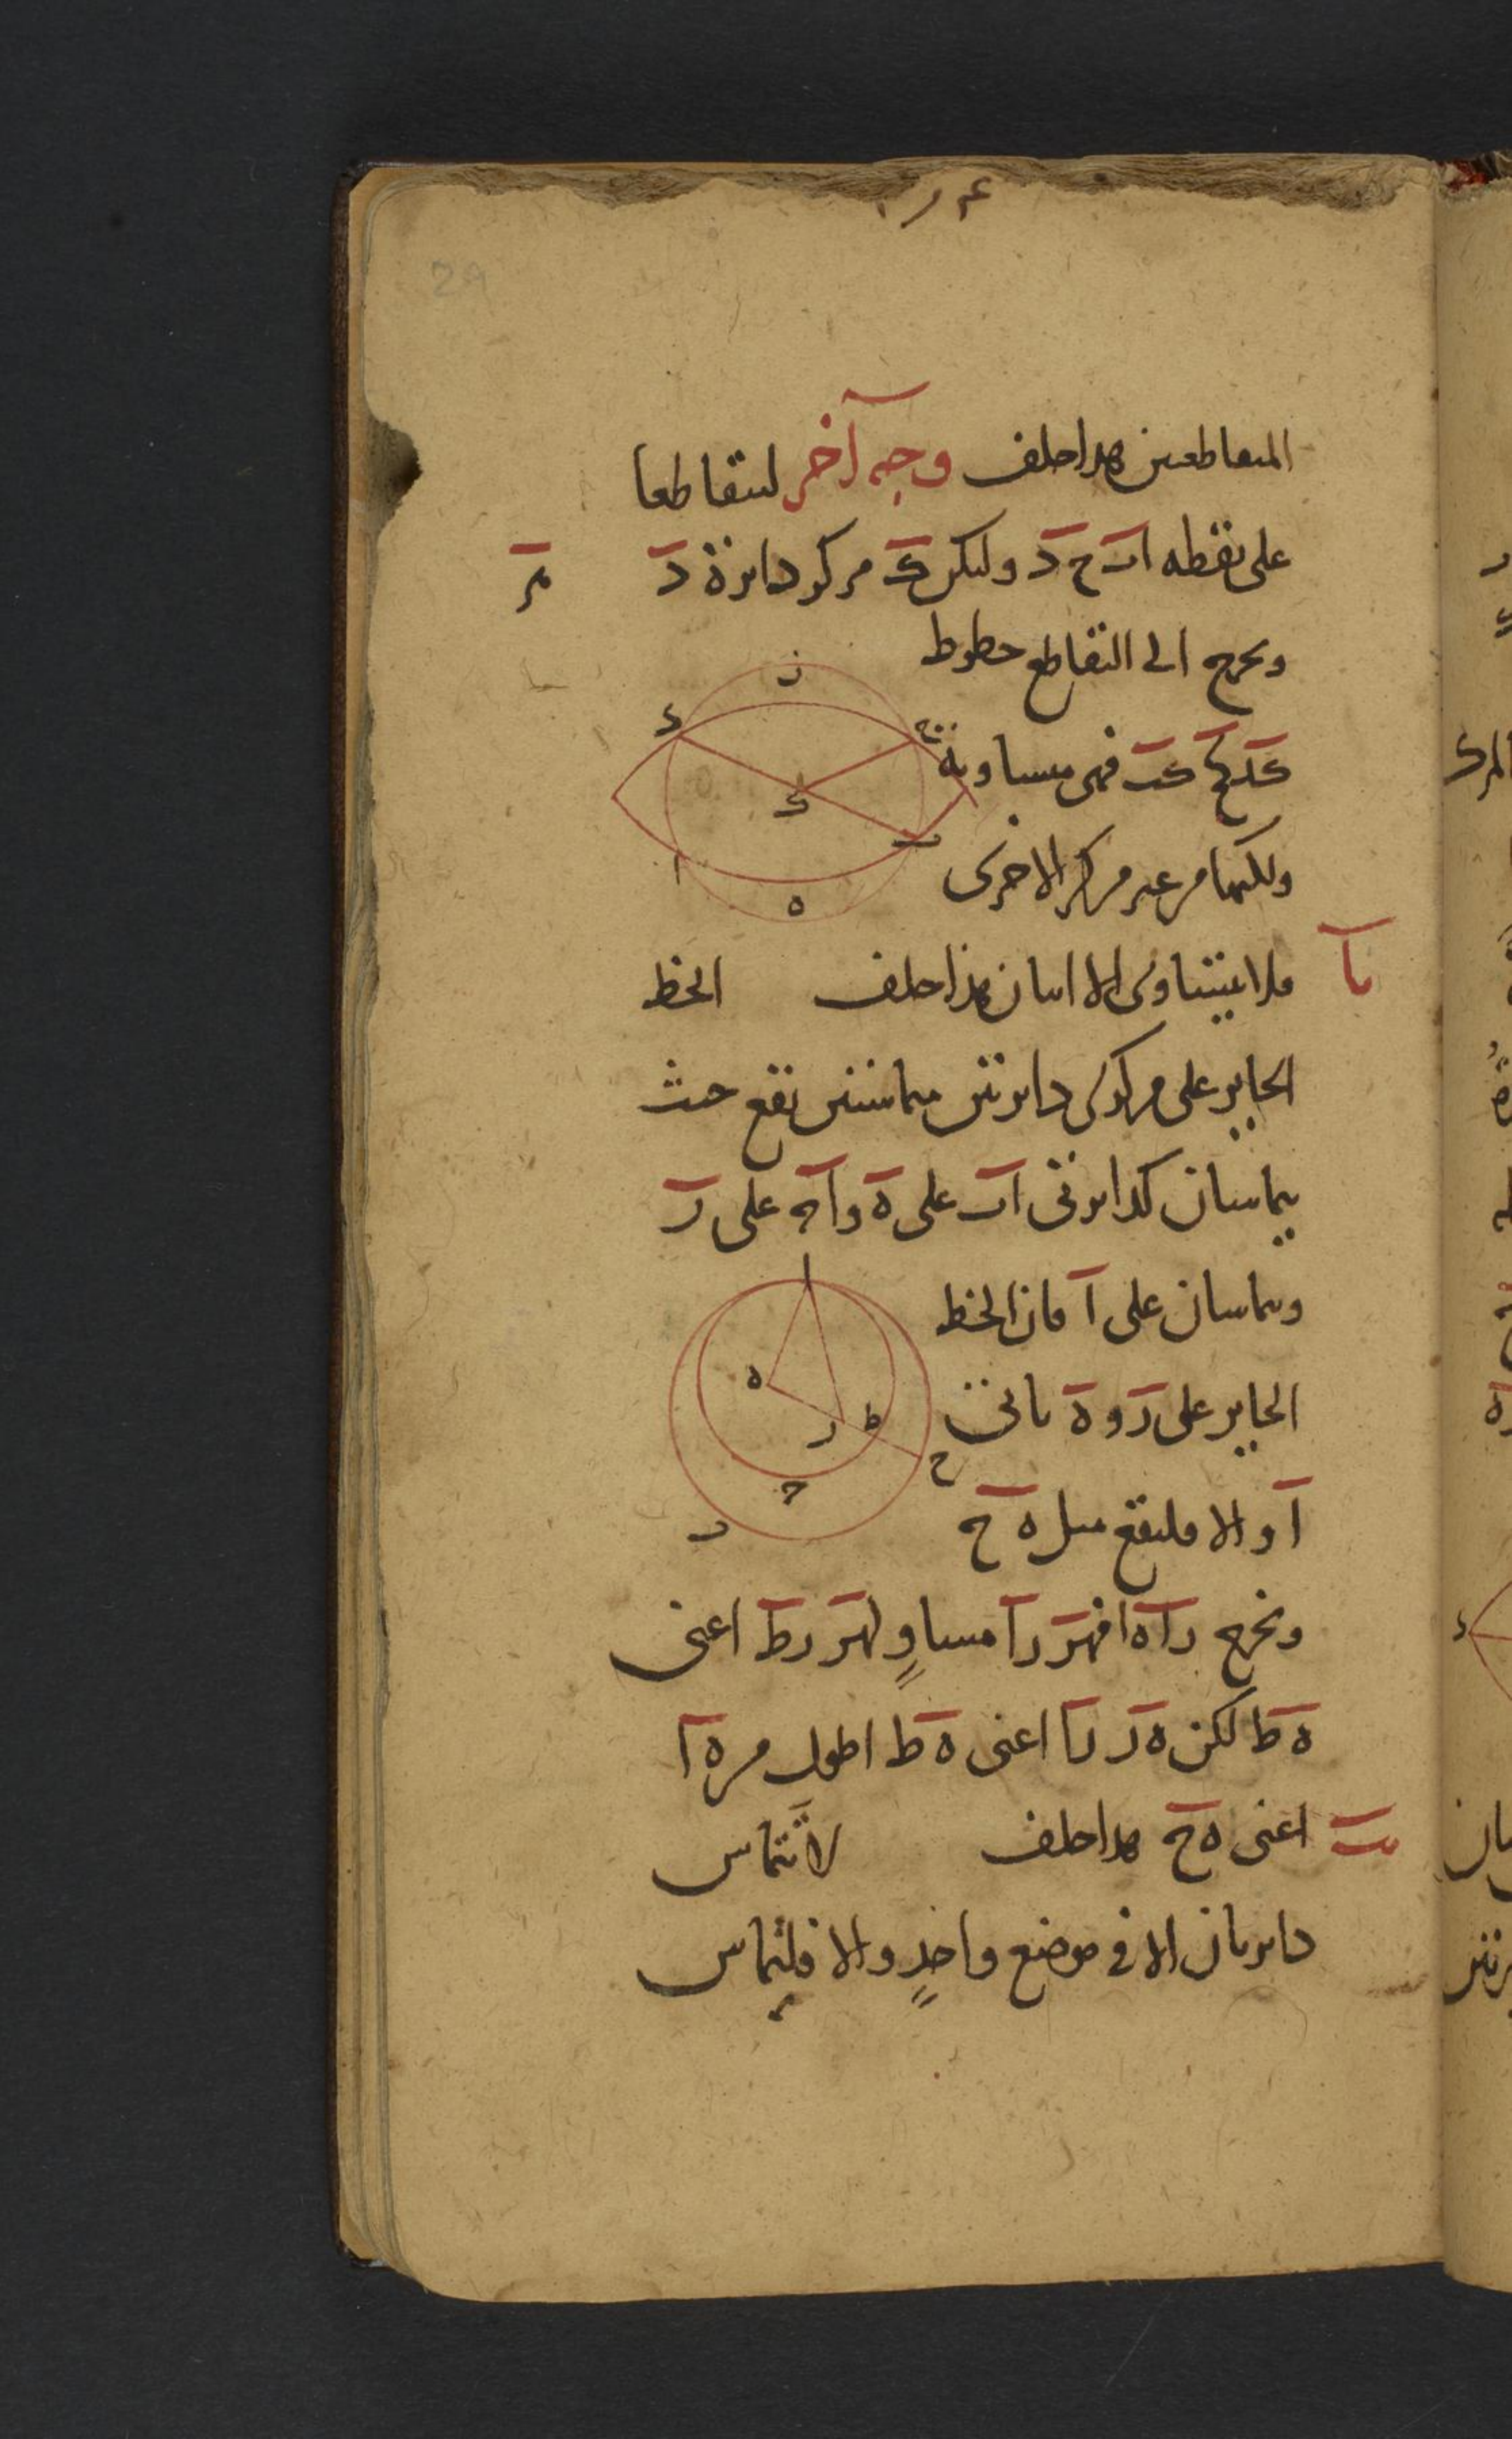 المتقاطعين هذا خلف وجه آخر ليتقاطعا
على نقطه ا ب ج د وليكن ك مركز دايرة د
ونخرج الى التقاطع خطوط
ز
د
ج
ك
ب
ا
ه
كد كج كب فهي متساوية
ولكنها من غير مركز الاخرى
يا
فلا يتساوى الا اثنان هذا خلف الخط
الجايز على مركزى دايرتين متماستين يقع حيث
يتماسان كدايرتى اب على ه واج على ر
ويتماسان على ا فان الخط
الجايز على ر و ه ياتى
ا
ه
ر
ط
ح
ج
ب
ا والا فليقع مثل ه ح
ونخرج را ه ا فهر را مساوٍ لهر رط اعنى
ه ط لكن ه ر را اعنى ه ط اطول من ه ا
يب
اعنى ه ح هذا خلف لا تتماس
دايرتان الا في موضع واحدٍ والا فليتماس
29